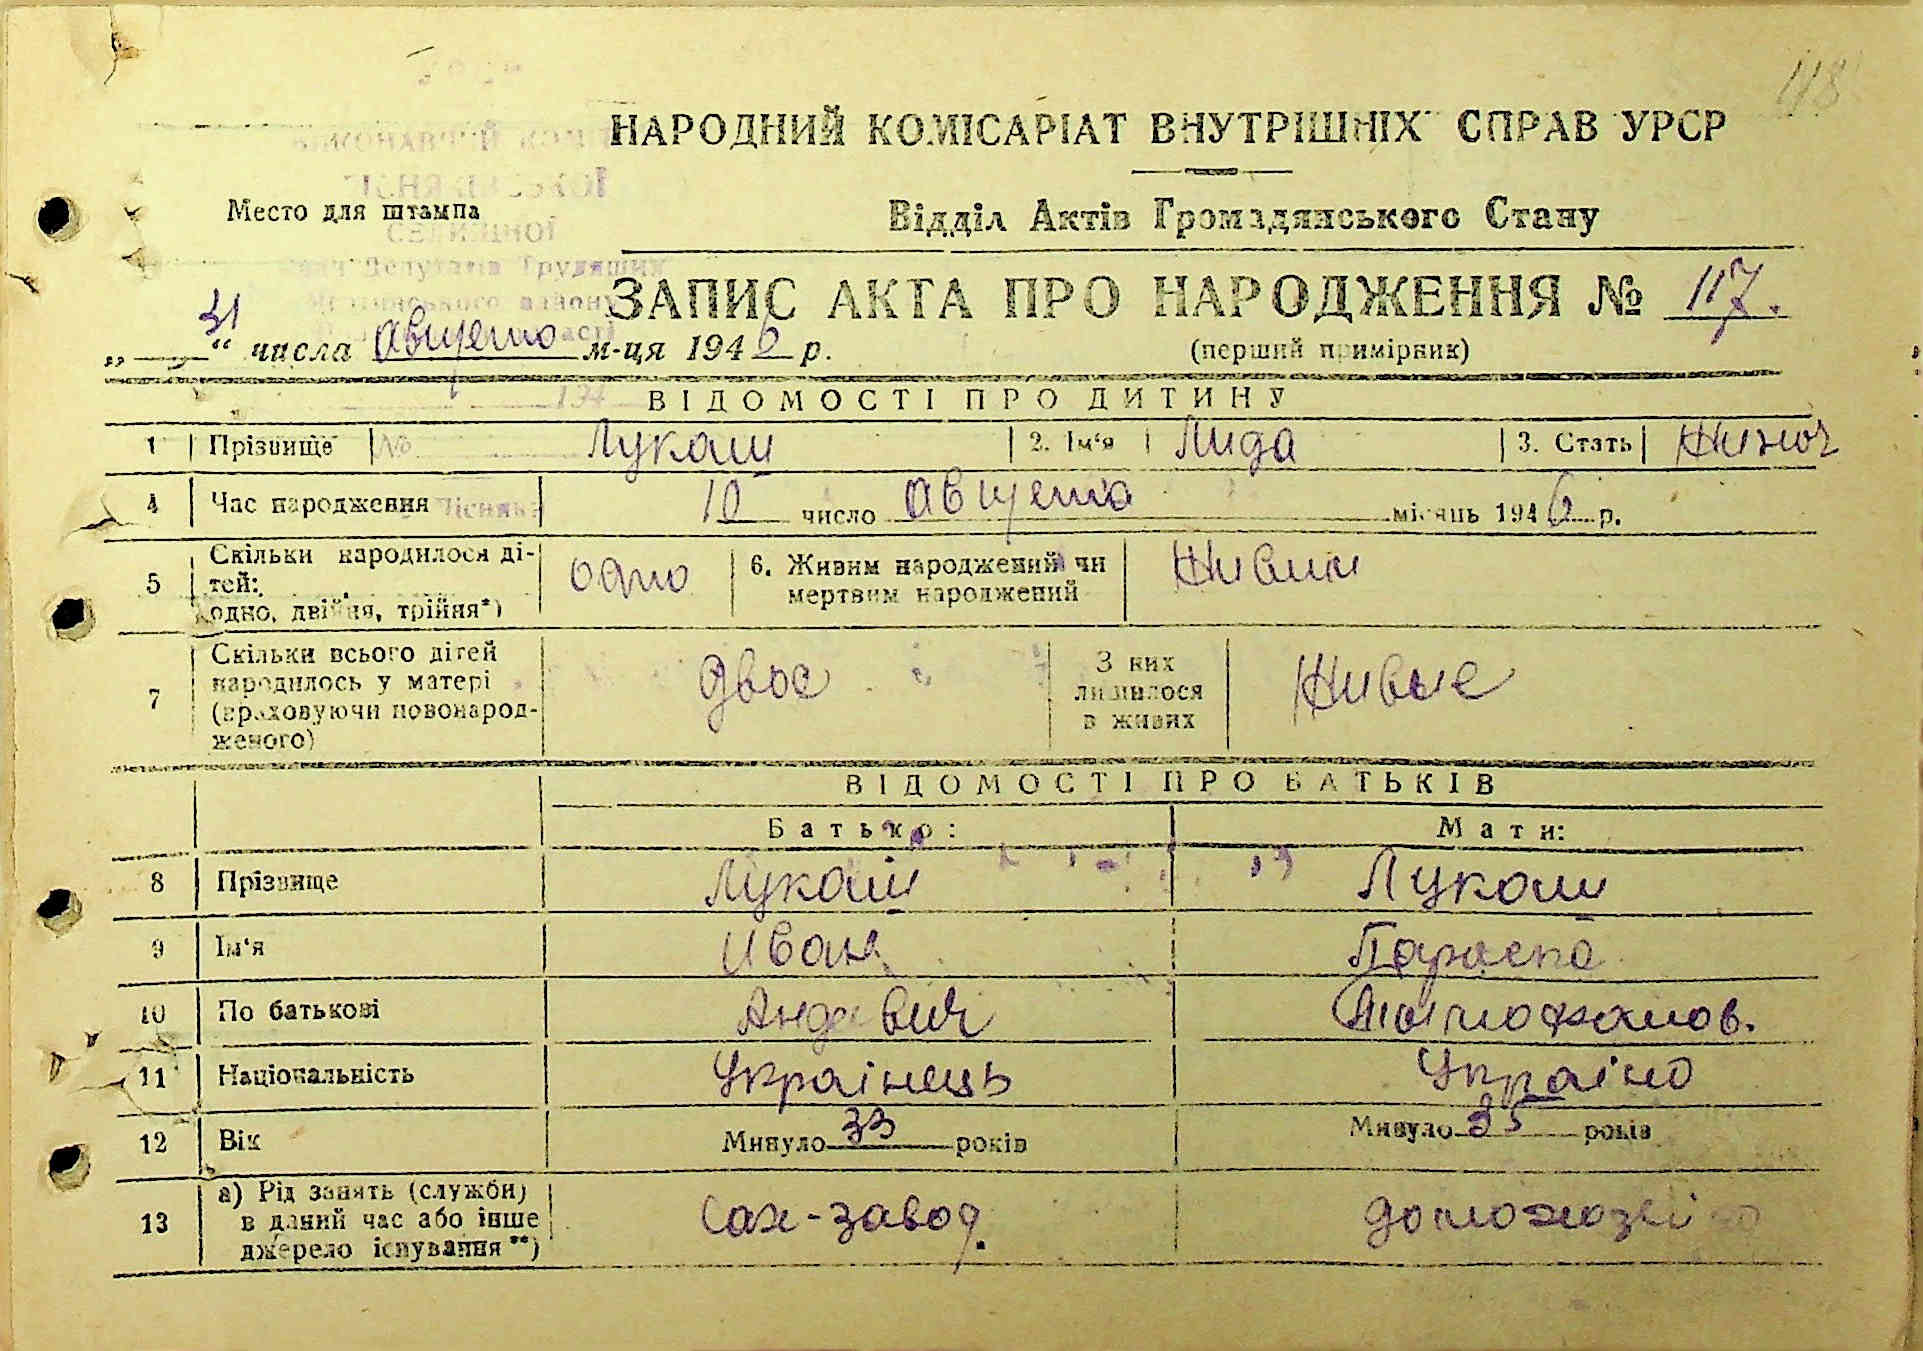 118
НАРОДНИЙ КОМІСАРІАТ ВНУТРІШНІХ СПРАВ УРСР
Место для штампа
Відділ Актів Громадянського Стану
ЗАПИС АКТА ПРО НАРОДЖЕННЯ № 117.
„31“ числа августо м-ця 1946 р.
(перший примірник)
ВІДОМОСТІ ПРО ДИТИНУ
1 Прізвище Лукаш 2. Ім'я Лида 3. Стать Жиноч
4 Час народження 10 число августа місяць 1946 р.
5 Скільки народилося ді-
тей:
одно, двійня, трійня*)
одно
6. Живим народжений чи
мертвим народжений
Живим
7 Скільки всього дітей
народилось у матері
(враховуючи новонарод-
женого)
двое
З них
лишилося
в живих
Живые
ВІДОМОСТІ ПРО БАТЬКІВ
Батько: Мати:
8 Прізвище Лукаш Лукаш
9 Ім'я Иван Параска
10 По батькові
11 Національність Українець Україно
12 Вік Минуло 33 років Минуло 35 років
13 а) Рід занять (служби)
в даний час або інше
джерело існування**)
Сах-завод.